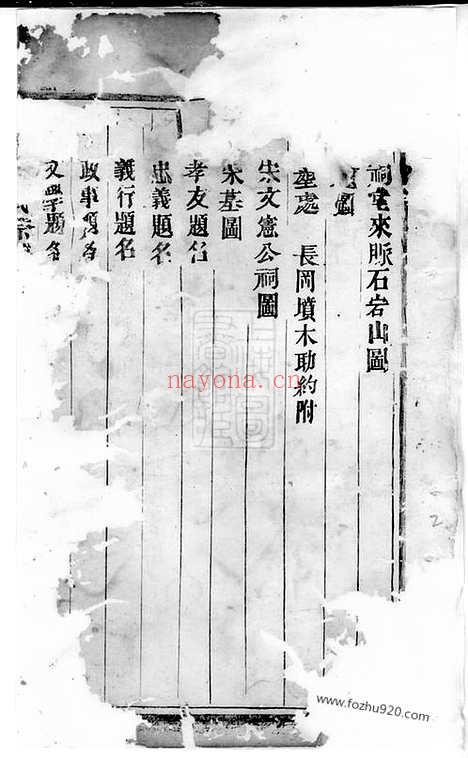 祠堂來脈石岩山圖
圖
塋處　長岡墳木助約附
宋文憲公祠圖
宋墓圖
孝友題名
忠義題名
義行題名
政事題名
文學題名
nayona.cn
www.fozhu920.com
2